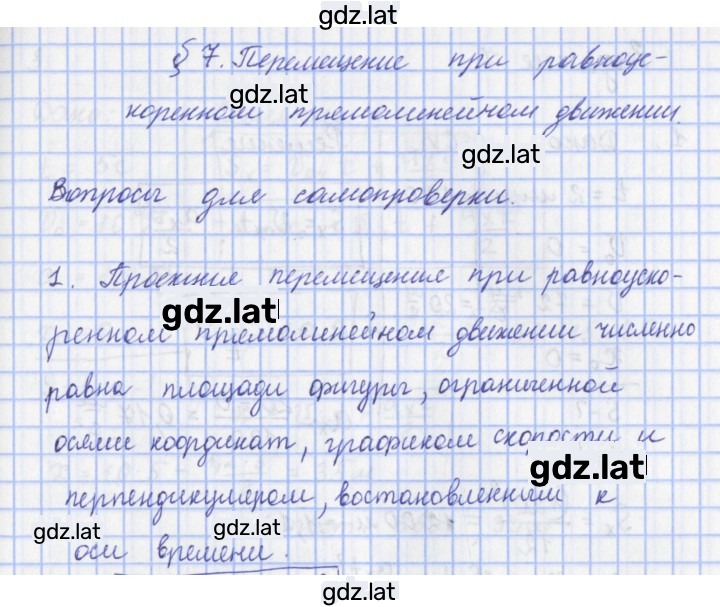 gdz.lat
§ 7. Перемещение при равноус-
gdz.lat
коренном прямолинейном движении.
gdz.lat
Вопросы для самопроверки.
1. Проекция перемещения при равноуско-
gdz.lat
ренном прямолинейном движении численно
равна площади фигуры, ограниченной
осями координат, графиком скорости и
gdz.lat
перпендикуляром, востановленным к
gdz.lat gdz.lat
оси времени.
gdz.lat